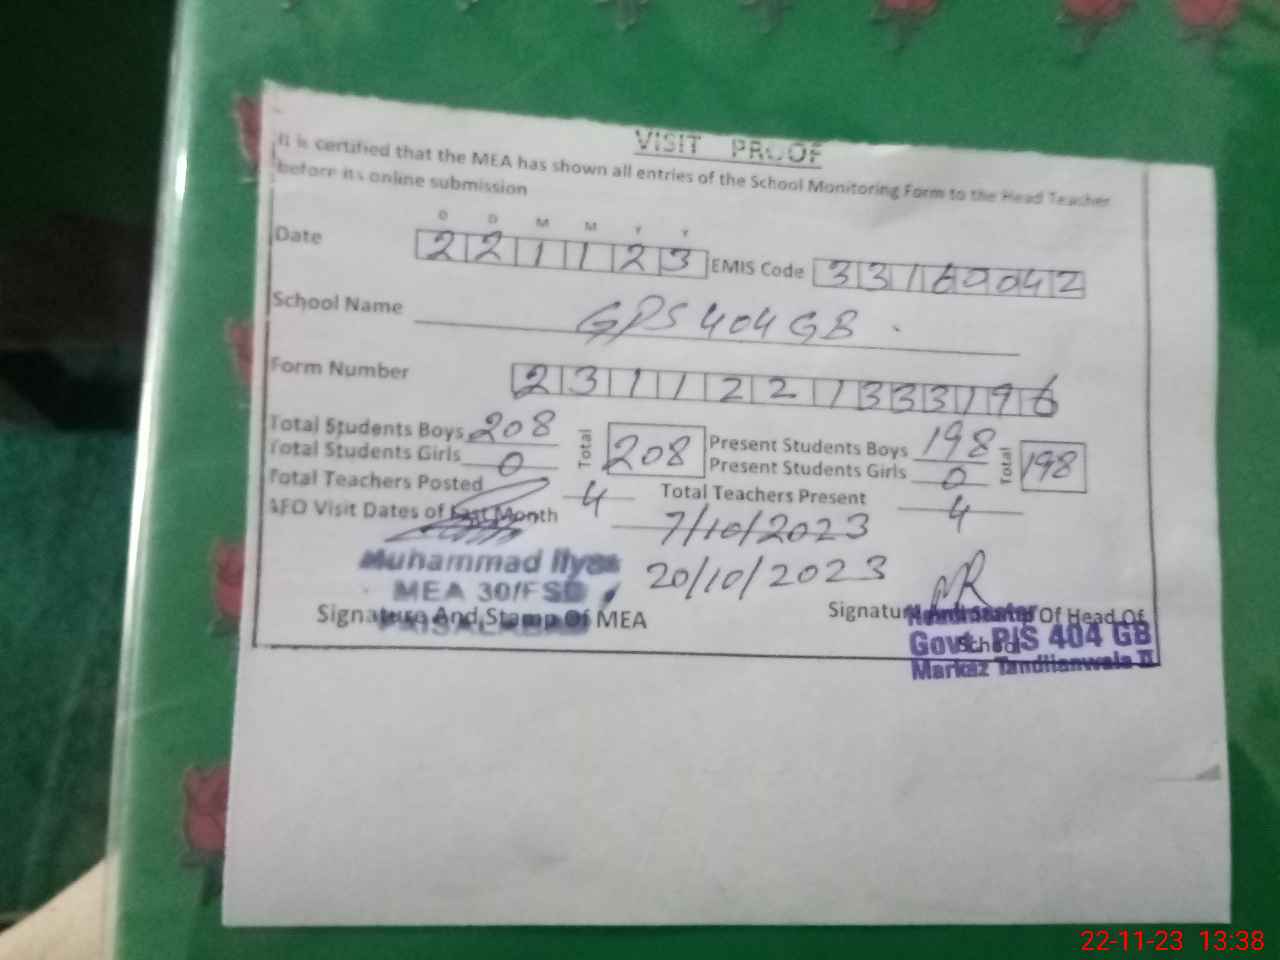 VISIT PROOF
It is certified that the MEA has shown all entries of the School Monitoring Form to the Head Teacher
before its online submission
D D M M Y Y
Date 221123 EMIS Code 33160042
School Name GPS 404 GB.
Form Number 231122133196
Total Students Boys 208 Total 208 Present Students Boys 198 Total 198
Total Students Girls 0 Present Students Girls 0
Total Teachers Posted 4 Total Teachers Present 4
AEO Visit Dates of Last Month 7/10/2023
20/10/2023
Muhammad Ilyas
MEA 30/FSD
FAISALABAD
Signature And Stamp Of MEA
Signature Of Head Of
School
Govt. P/S 404 GB
Markaz Tandlianwala II
22-11-23 13:38